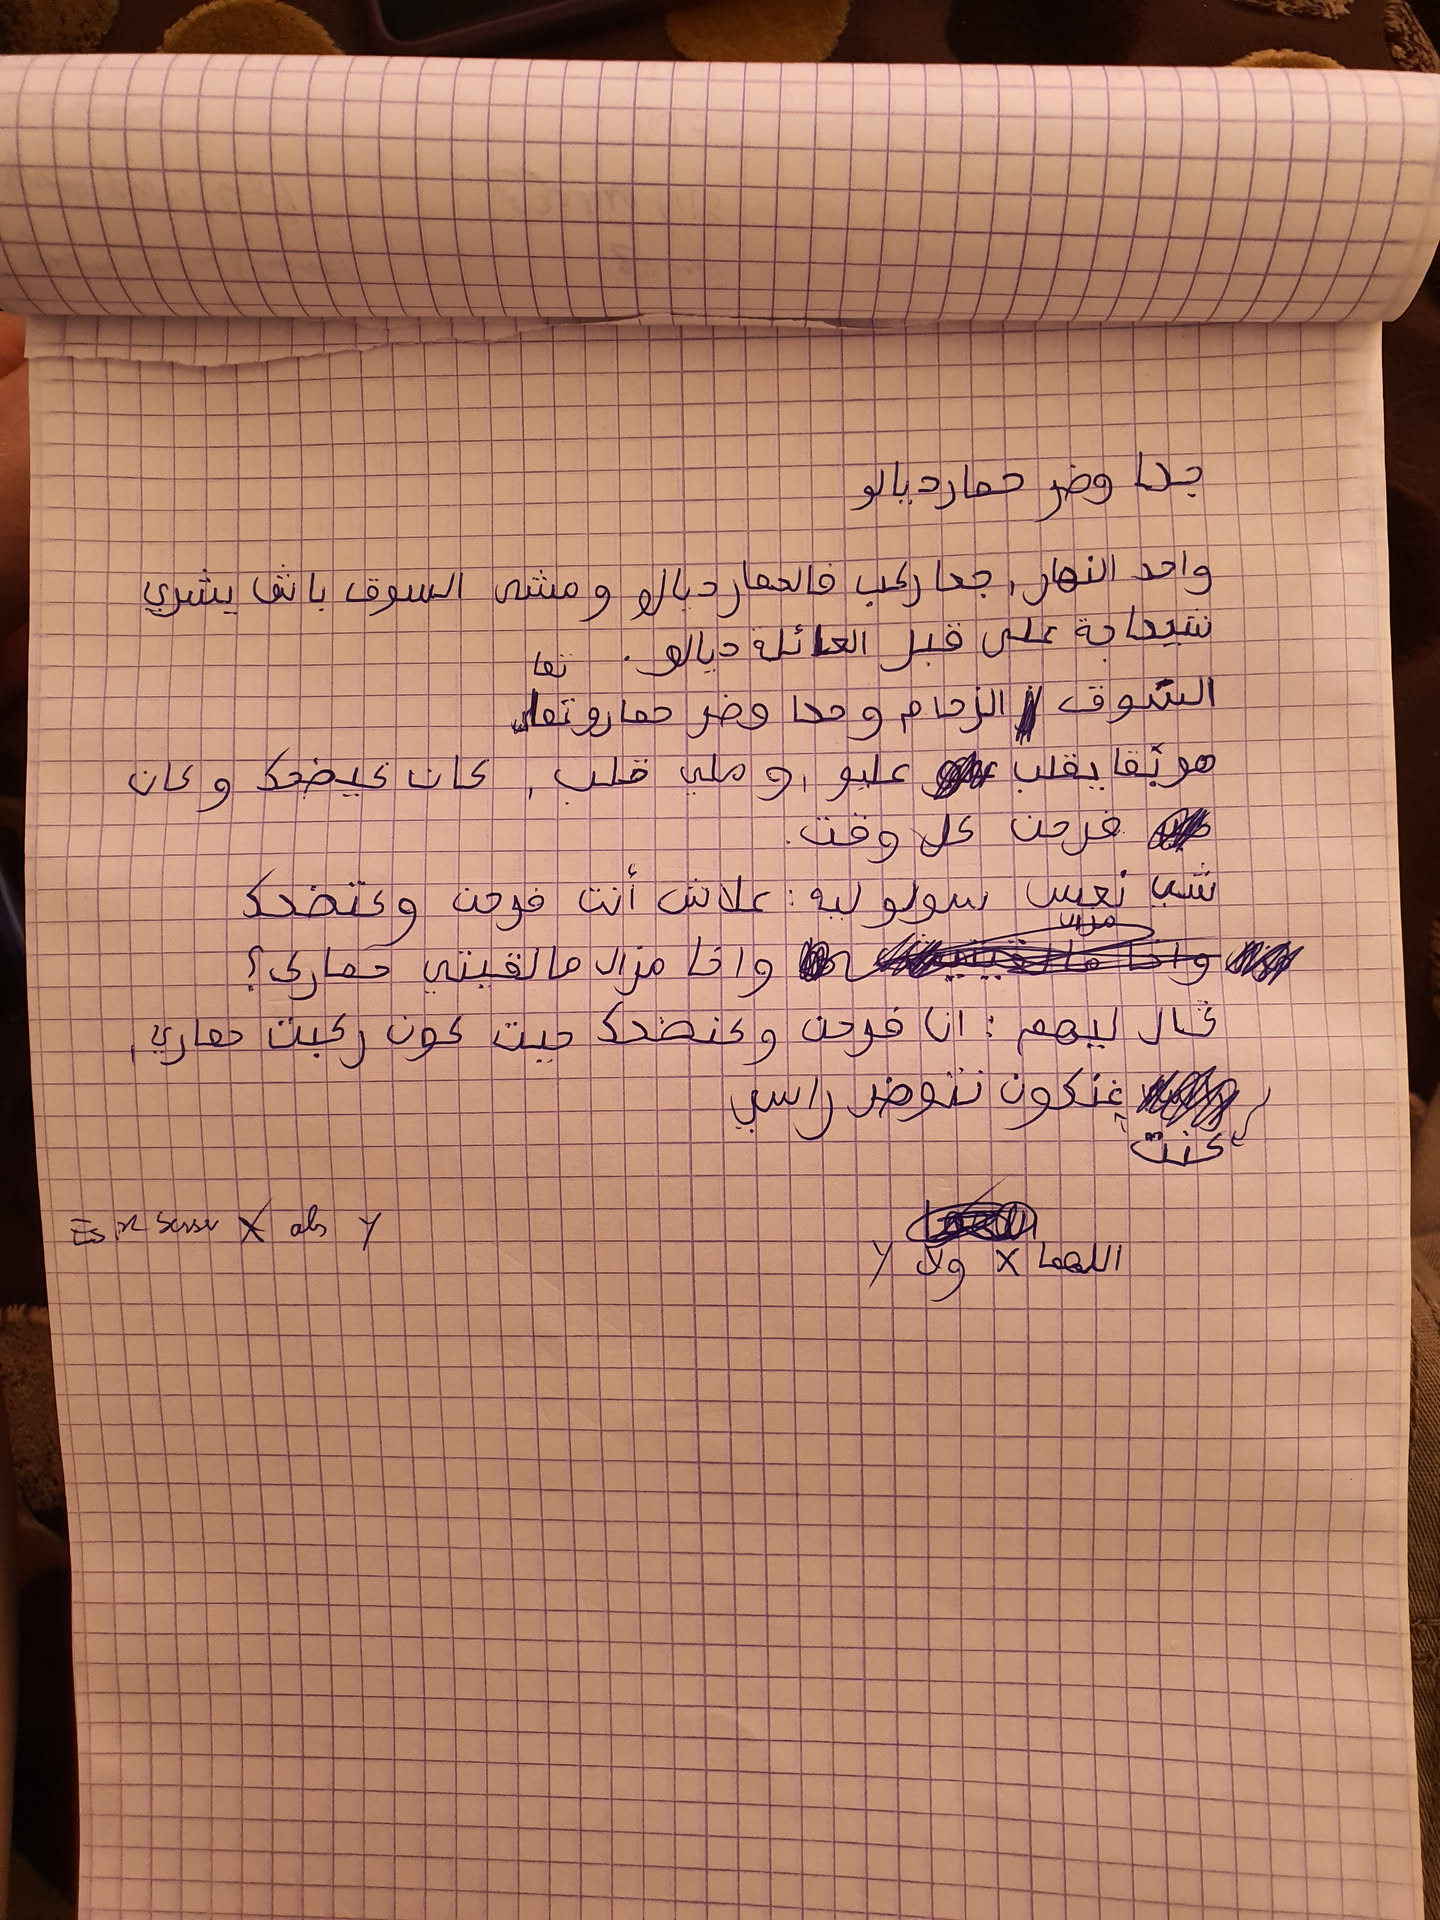 جحا وضر حمار ديالو
واحد النهار, جحا ركب فالحمار ديالو و مشى السوق باش يشري
شيحاجة على قبل العائلة ديالو.
تفا
السوق الزحام و جحا وضر حمارو تفا
هو بقا يقلب عليو, و ملي قلب, كان كيضحك و كان
فرحن كل وقت.
شي نعس سولو ليه: علاش أنت فرحن وكتضحك
مزال
واخا مزال مالقيتي حمارك؟
گال ليهم: انا فرحن وكنضحك حيت كون ركبت حماري,
غنكون نتوضر راسي
كنت
Es ist besser X als Y
اللهما X ولا Y